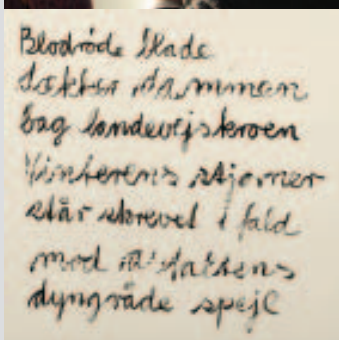 Blodrøde blade
dækker dammen
bag landevejskroen
Vinterens stjerner
står skrevet i fald
mod
dyngvåde spejl